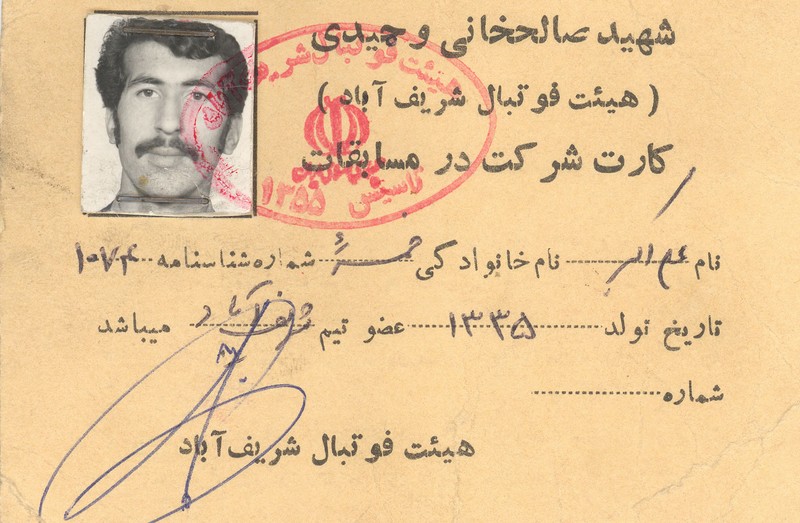 شهید صالحخانی و حمیدی
( هیئت فوتبال شریف آباد )
کارت شرکت در مسابقات
هیئت فوتبال شر
تاسیس ۱۳۵۵
نام نام خانوادگی شماره شناسنامه ۱۰۷۴
تاریخ تولد ۱۳۳۵ عضو تیم شریف آباد میباشد
شماره
هیئت فوتبال شریف آباد